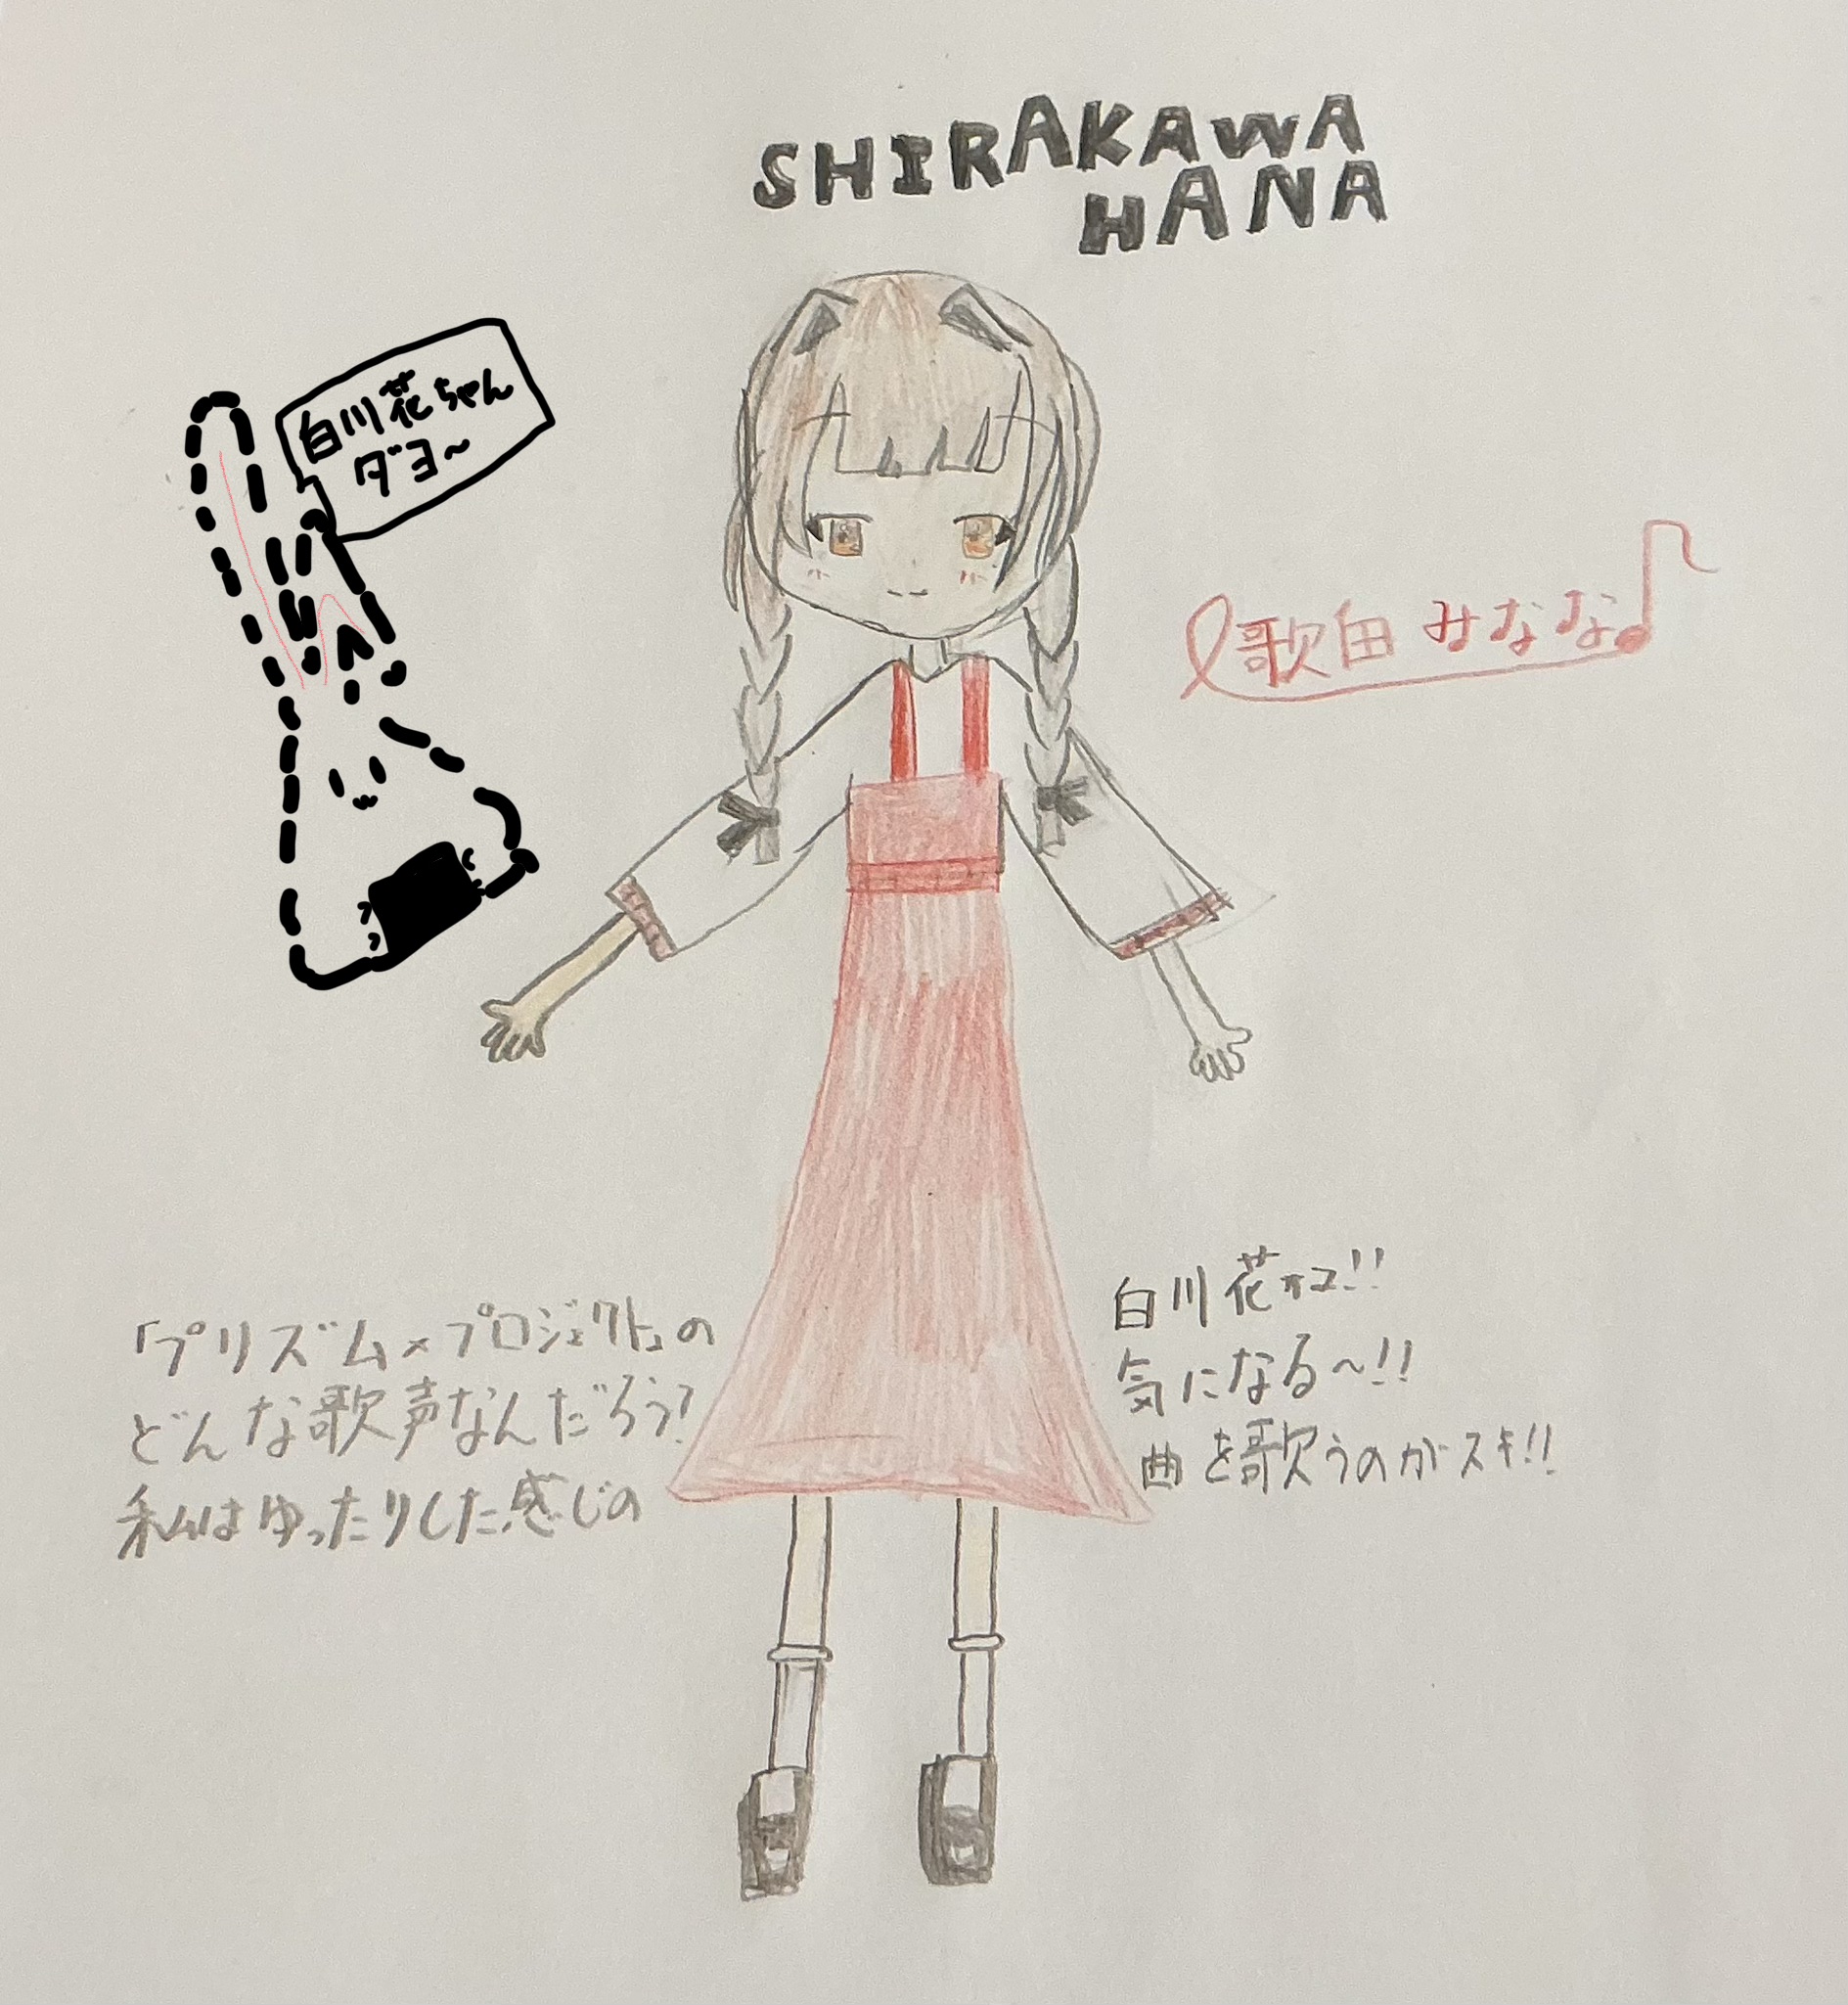 SHIRAKAWA
HANA
白川花ちゃん
ダヨ～
歌田 みなな
「プリズム×プロジェクト」の
どんな歌声なんだろう?
私はゆったりした感じの
白川花ﾁｺ!!
気になる～!!
曲を歌うのがスキ!!